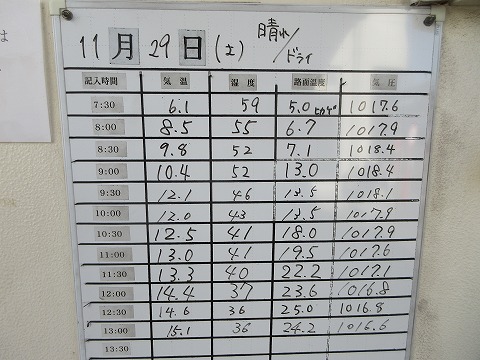 11月29日(土) 晴れ/ドライ
記入時間 気温 湿度 路面温度 気圧
7:30 6.1 59 5.0 ヒカゲ 1017.6
8:00 8.5 55 6.7 1017.9
8:30 9.8 52 7.1 1018.4
9:00 10.4 52 13.0 1018.4
9:30 12.1 46 13.5 1018.1
10:00 12.0 43 13.5 1017.9
10:30 12.5 41 18.0 1017.9
11:00 13.0 41 19.5 1017.6
11:30 13.3 40 22.2 1017.1
12:00 14.4 37 23.6 1016.8
12:30 14.6 36 25.0 1016.8
13:00 15.1 36 24.2 1016.6
13:30
は